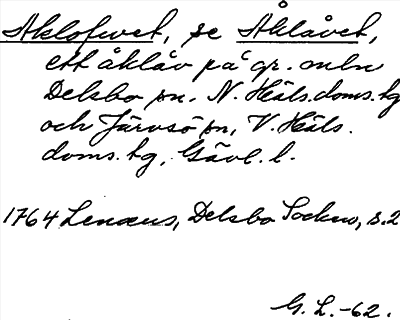 Åklofwet, se Åklåvet,
ett åklåv på gr. mln
Delsbo sn. N. Häls. doms. hg
och Järvsö sn, V. Häls.
doms. hg, Gävl. l.
1764 Lenæus, Delsbo Socken, s. 2
G. L. -62.